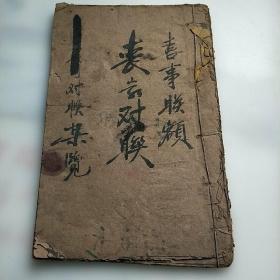 喜事联额
丧言对联
对联集览